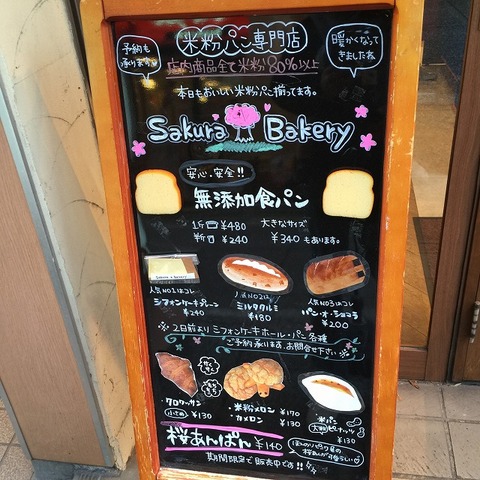 米粉パン専門店
予約も
承ります
暖かくなって
きましたね
店内商品全て米粉80%以上
本日もおいしい米粉パン揃ってます。
Sakura Bakery
安心・安全!!
無添加食パン
1斤 ¥480
半斤 ¥240
大きなサイズ
¥340 もあります。
人気NO1はコレ
シフォンケーキプレーン
¥240
人気NO2は
ミルククルミ
¥180
人気NO3はコレ
パン・オ・ショコラ
¥200
※2日前よりシフォンケーキホール・パン各種
ご予約承ります。お問合せ下さい※
・クロワッサン
小さめ ¥130
・米粉メロン ¥170
・カメロン ¥130
・米パン
大判ピーナッツ
¥130
桜あんぱん ¥140
期間限定で販売中です!!